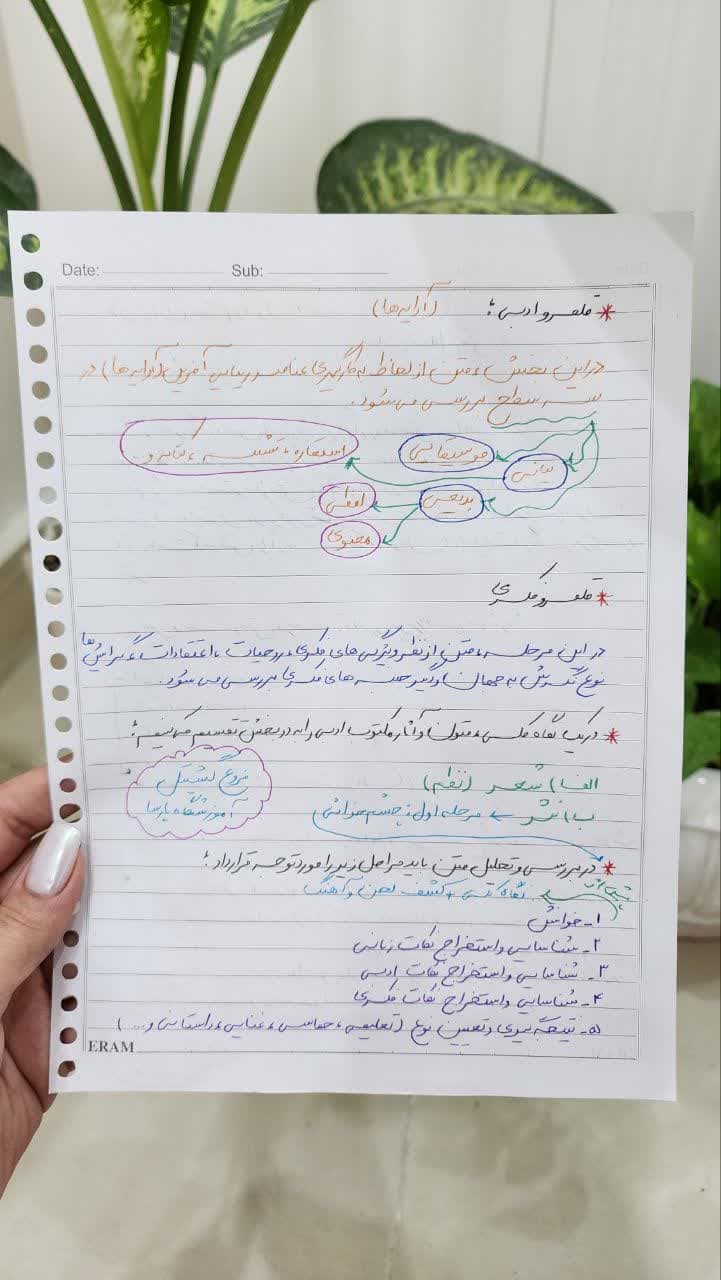 Date:
Sub:
* قلمرو ادبی: (آرایه‌ها)
در این بخش، متن از لحاظ به‌کارگیری عناصر زیبایی آفرین (آرایه‌ها) در
سه سطح بررسی می‌شود.
موسیقایی
بیانی
استعاره، تشبیه، کنایه و...
بدیعی
لفظی
معنوی
* قلمرو فکری
در این مرحله، متن از نظر ویژگی‌های فکری، روحیات، اعتقادات، گرایش‌ها
نوع نگرش به جهان و دیگر جنبه‌های فکری بررسی می‌شود.
* در یک نگاه کلی، متون و آثار مکتوب ادبی را به دو بخش تقسیم می‌کنیم:
الف) شعر (نظم)
ب) نثر
مرحله اول: چشم‌خوانی
آموزشگاه پارسا
* در بررسی و تحلیل متن باید مراحل زیر را مورد توجه قرار داد:
نگاه کلی، کشف لحن و آهنگ
۱- خوانش
۲- شناسایی و استخراج نکات زبانی
۳- شناسایی و استخراج نکات ادبی
۴- شناسایی و استخراج نکات فکری
۵- نتیجه‌گیری و تعیین نوع (تعلیمی، حماسی، غنایی، داستانی و...)
ERAM